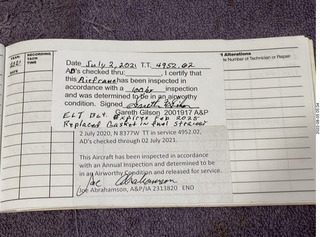 YEAR
2021
DATE
RECORDING
TACH
TIME
Alterations
Number of Technician or Repair
Date July 2, 2021 T.T. 4952.02
AD's checked thru: , I certify that
this Airframe has been inspected in
accordance with a 100hr inspection
and was determined to be in an airworthy
condition. Signed
Gareth Gilson 2001917 A&P
ELT Bat. Expires Feb 2025
Replaced Gasket in fuel strainer
2 July 2020, N 8377W TT in service 4952.02,
AD's checked through 02 July 2021.
This Aircraft has been inspected in accordance
with an Annual Inspection and determined to be
in an Airworthy Condition and released for service.
Joe Abrahamson
Joe Abrahamson, A&P/IA 2313820 ENO